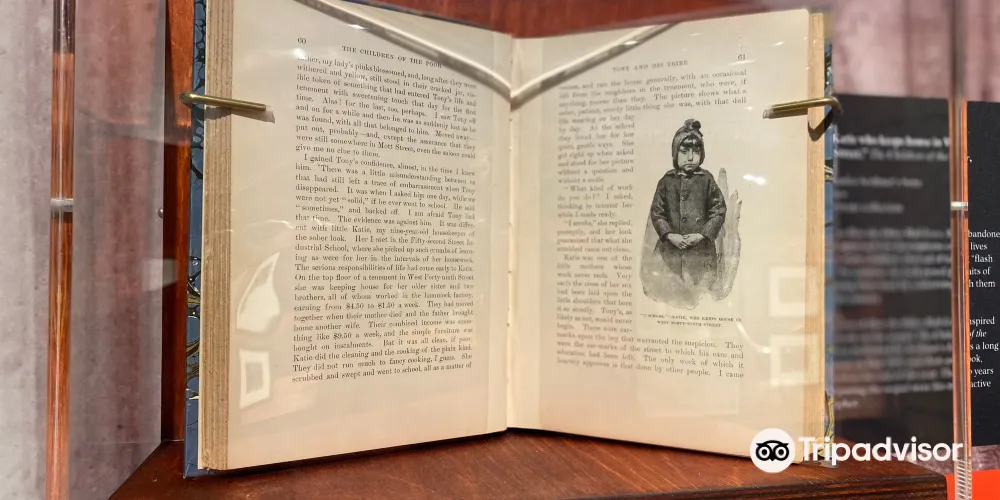 60
THE CHILDREN OF THE POOR
my lady's pinks blossomed, and, long after they were
withered and yellow, still stood in their cracked jar, vis-
ible token of something that had entered Tony's life and
tenement with sweetening touch that day for the first
time. Alas! for the last, too, perhaps. I saw Tony off
and on for a while and then he was as suddenly lost as he
was found, with all that belonged to him. Moved away—
put out, probably—and, except the assurance that they
were still somewhere in Mott Street, even the saloon could
give me no clue to them.
I gained Tony's confidence, almost, in the time I knew
him. There was a little misunderstanding between us
that had still left a trace of embarrassment when Tony
disappeared. It was when I asked him one day, while we
were not yet "solid," if he ever went to school. He said
"sometimes," and backed off. I am afraid Tony lied
that time. The evidence was against him. It was differ-
ent with little Katie, my nine-year-old housekeeper of
the sober look. Her I met in the Fifty-second Street In-
dustrial School, where she picked up such crumbs of learn-
ing as were for her in the intervals of her housework.
The serious responsibilities of life had come early to Katie.
On the top floor of a tenement in West Forty-ninth Street
she was keeping house for her older sister and two
brothers, all of whom worked in the hammock factory,
earning from $4.50 to $1.50 a week. They had moved
together when their mother died and the father brought
home another wife. Their combined income was some-
thing like $9.50 a week, and the simple furniture was
bought on instalments. But it was all clean, if poor.
Katie did the cleaning and the cooking of the plain kind.
They did not run much to fancy cooking, I guess. She
scrubbed and swept and went to school, all as a matter of
TONY AND HIS TRIBE
61
course, and ran the house generally, with an occasional
lift from the neighbors in the tenement, who were, if
anything, poorer than they. The picture shows what a
sober, patient, sturdy little thing she was, with that dull
life wearing on her day
by day. At the school
they loved her for her
quiet, gentle ways. She
got right up when asked
and stood for her picture
without a question and
without a smile.
"What kind of work
do you do?" I asked,
thinking to interest her
while I made ready.
"I scrubs," she replied,
promptly, and her look
guaranteed that what she
scrubbed came out clean.
Katie was one of the
little mothers whose
work never ends. Very
early the cross of her sex
had been laid upon the
little shoulders that bore
it so stoutly. Tony's, as
likely as not, would never
begin. There were ear-
marks upon the boy that warranted the suspicion. They
were the ear-marks of the street to which his care and
education had been left. The only work of which it
heartily approves is that done by other people. I came
"I SCRUBS."—KATIE, WHO KEEPS HOUSE IN
WEST FORTY-NINTH STREET.
Katie who keeps house in W
lives
"flash
Tripadvisor